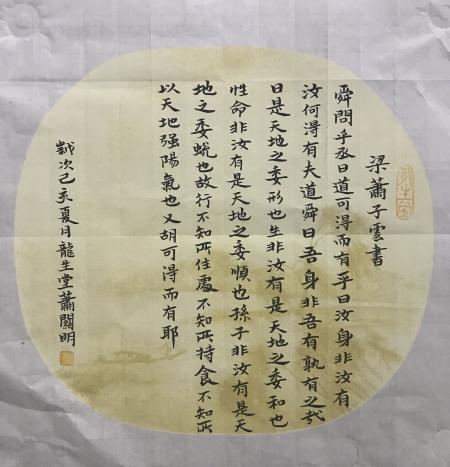 梁蕭子雲書
舜問乎丞曰道可得而有乎曰汝身非汝有
汝何得有夫道舜曰吾身非吾有孰有之哉
曰是天地之委形也生非汝有是天地之委和也
性命非汝有是天地之委順也孫子非汝有是天
地之委蛻也故行不知所往處不知所持食不知所
以天地强陽氣也又胡可得而有耶
歲次己亥夏月龍生堂蕭關明